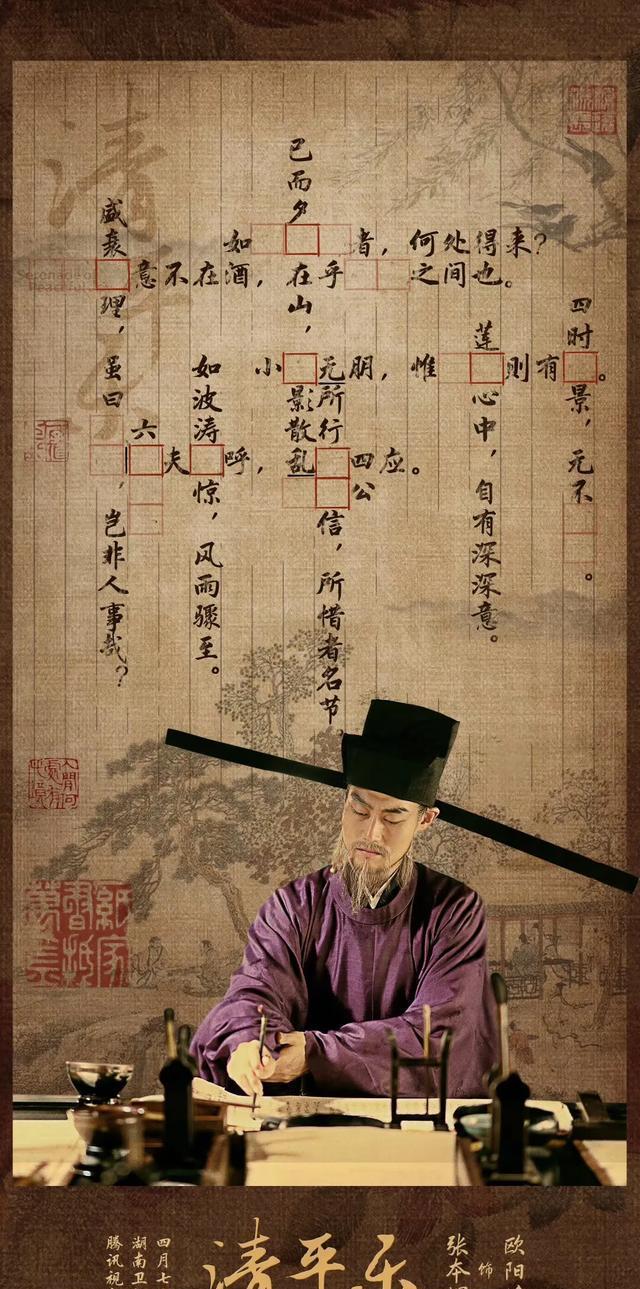 如者，何处得来？
意不在酒，在乎之间也。
小无朋，惟则有。
夫呼，乱四应。
盛衰理，虽曰，岂非人事哉？
六
如波涛惊，风雨骤至。
已而夕在山，影散乱
所行公信，所惜者名节
莲心中，自有深深意。
四时景，无不。
清平
Serenade of
欧阳
饰
张本
清平乐
四月七
湖南卫
腾讯视